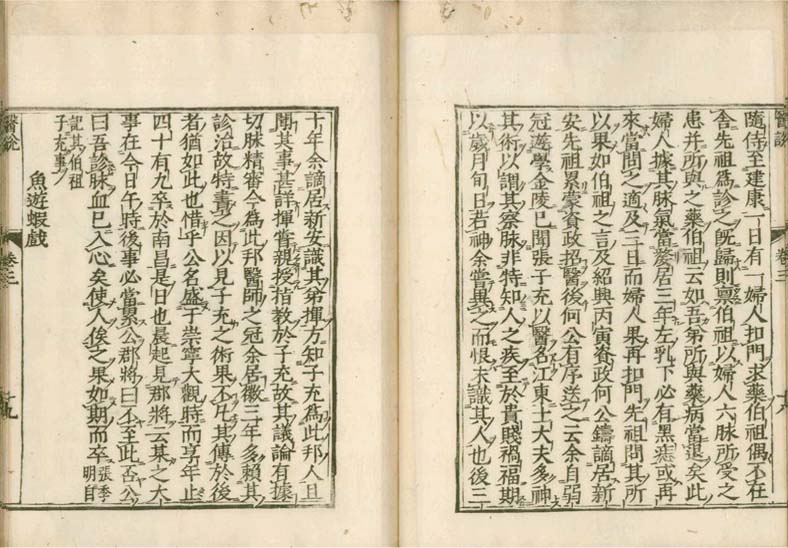 隨侍至建康一日有一婦人扣門求藥伯祖偶不在
舍先祖爲診之既歸則禀伯祖以婦人六脉所受之
患并所與之藥伯祖云如吾弟所與藥病當退矣此
婦人據其脉氣當嫠居三年左乳下必有黑痣或再
來當問之適及三日而婦人果再扣門先祖問其所
以果如伯祖之言及紹興丙寅資政何公鑄謫居新
安先祖累蒙資政招醫後何公有序送之云余自弱
冠遊學金陵已聞張子充以醫名江東士大夫多神
其術以謂其察脉非特知人之疾至於貴賤禍福期
以歲月旬日若神余嘗異之而恨未識其人也後三
十年余謫居新安識其弟揮方知子充爲此邦人且
聞其事甚詳揮嘗親授指教於子充故其議論有據
切脉精審今為此邦醫師之冠余居徽三年多賴其
診治故特書之因以見子充之術果不凡其傳於後
者猶如此也惜乎公名盛于崇寧大觀時而享年止
四十有九卒於南昌是日也晨起見郡將云某之大
事在今日午時後事必當累公郡將曰不至此否公
曰吾診脉血已入心矣使人俟之果如期而卒 張季明自
記其伯祖子充事
魚遊蝦戲
醫說
卷三
十八
卷三
十九